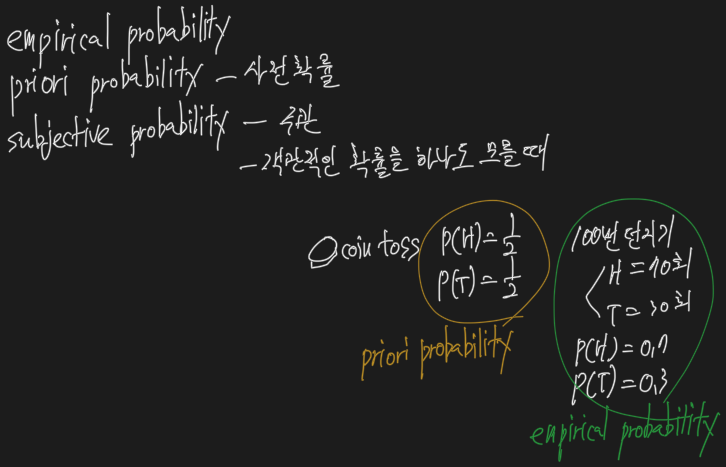 empirical probability
priori probability - 사전확률
subjective probability - 주관
- 객관적인 확률을 하나도 모를 때
coin toss
P(H)=1/2
P(T)=1/2
priori probability
100번 던지기
H=70회
T=30회
P(H)=0.7
P(T)=0.3
empirical probability